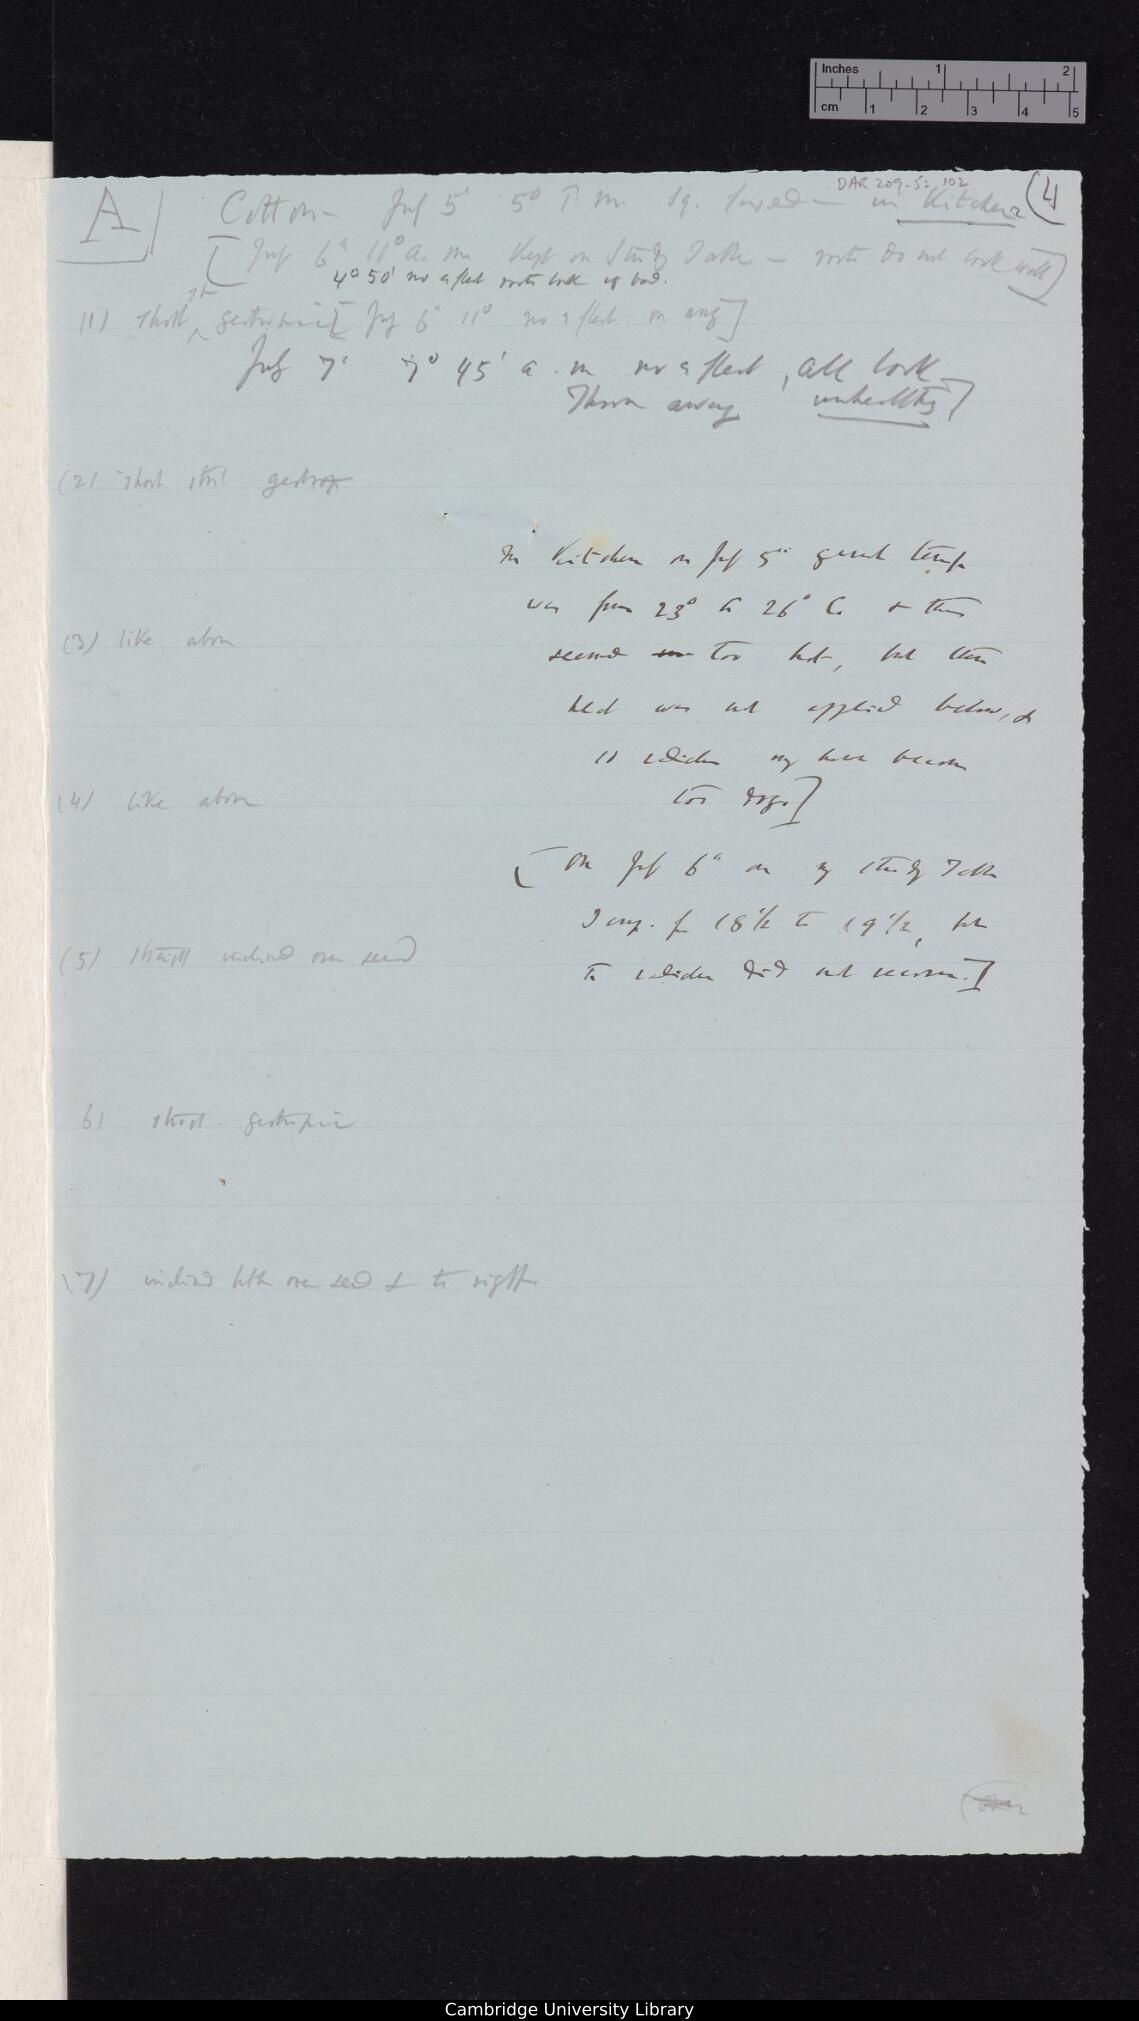 Inches 1 2
cm 1 2 3 4 5
DAR 209.5: 102
(4
A
Cotton — July 5' 5° P.m. Sq. fixed — in Kitchen
[July 6" 11° a.m Kept on Study Table — roots do not look well]
4° 50' no aflect roots look bad.
(1) short str geotropic [July 6" 11° no aflect on any]
July 7' 7° 45' a.m no aflect, all look
Thrown away unhealthy]
(2) short str' geotrop
In Kitchen on July 5" temp
was from 23° to 26° C. & this
(3) like above
seemed too hot, but then
heat was not applied below, &
radicles may have become
(4) like above
too dry.]
[On July 6" on my study Table
Temp. fr 18 1/2 to 19 1/2, but
(5) straight inclined over seed
radicles did not recover.]
6) short geotropic
(7) inclined both over seed & to right
Cambridge University Library